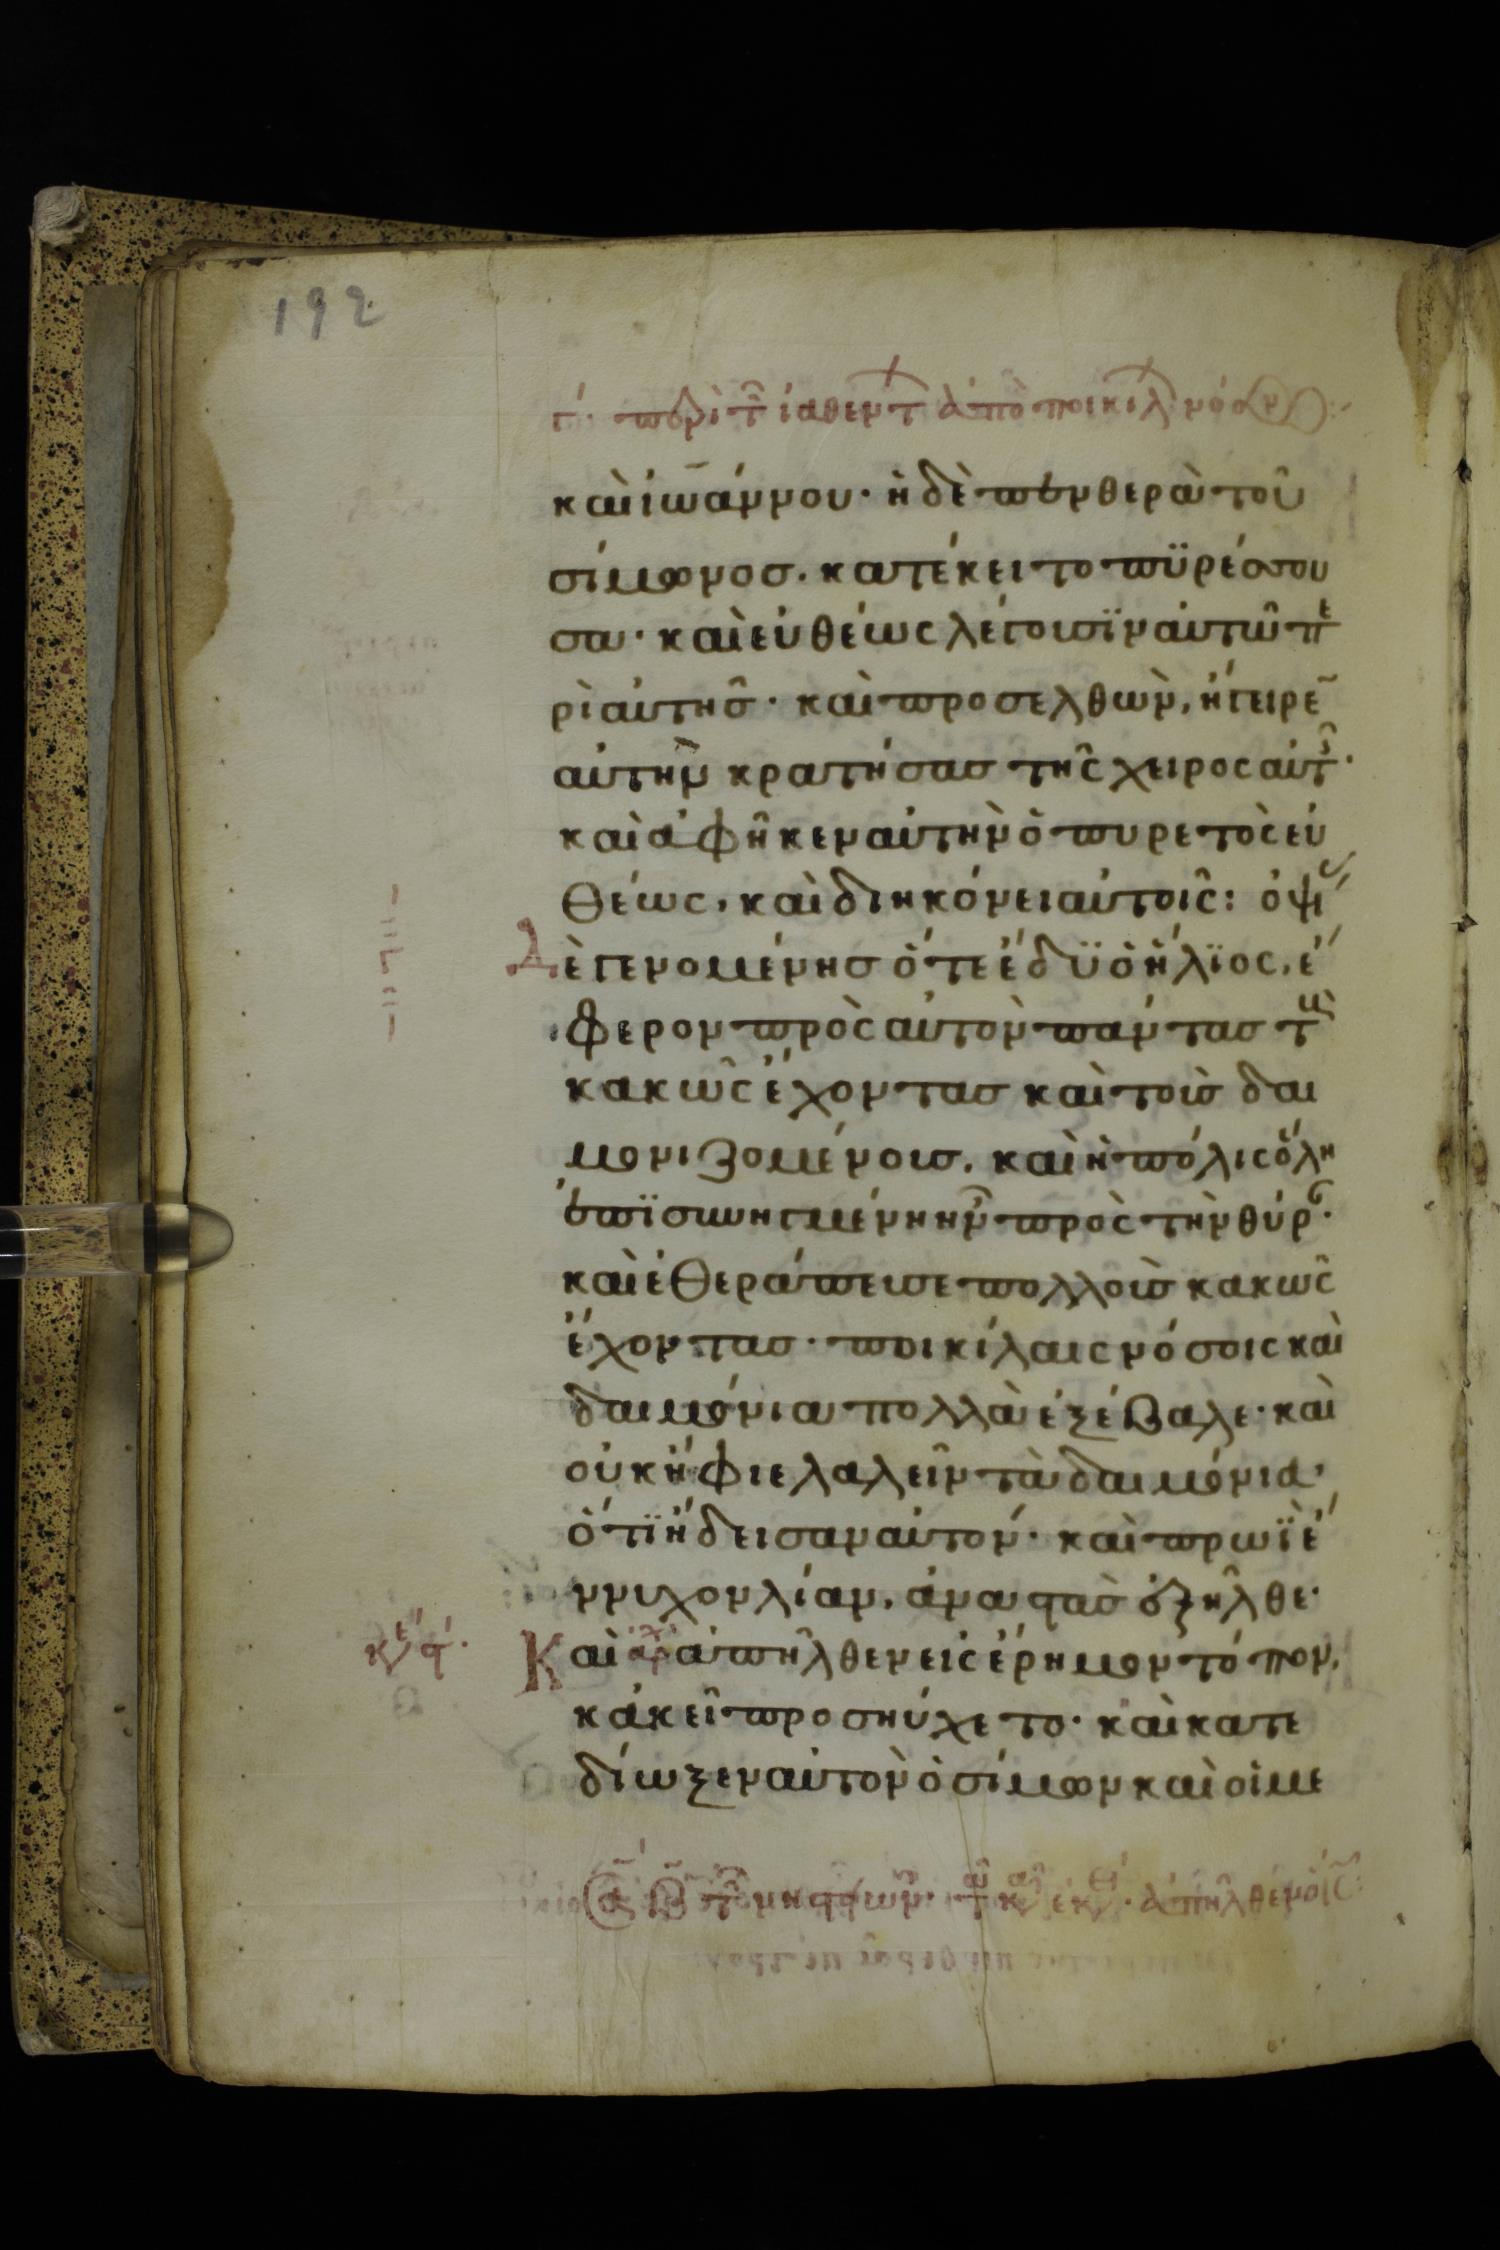 192
γ́· περὶ τ̂ ἰαθεντ ἀπὸ ποικίλ νόσων
καὶ ἰωάννου· ἡ δὲ πενθερὰ τοῦ
σίμωνοσ. κατέκειτο πϋρέσσου
σα· καὶ εὐθέως λέγουσϊν αὐτῶ πε
ρὶ αὐτῆσ· καὶ προσελθὼν, ἤγειρε
αὐτὴν κρατήσασ τῆς χειρος αὐτ̂·
καὶ ἀφῆκεν αὐτὴν ὁ πυρετὸς εὐ
θέως, καὶ διηκόνει αὐτοῖς: ὀψί
Δὲ γενομένησ ὅτε ἔδϋ ὁ ἥλϊος, ἔ
φερον πρὸς αὐτὸν πάντασ τοὺς
κακῶς ἔχοντασ καὶ τοὺσ δαι
μονιζομένουσ. καὶ ἡ πόλις ὅλη
ἐπϊσυνηγμένη ἦν πρὸς τὴν θύρ·
καὶ ἐθεράπευσε πολλοὺσ κακῶς
ἔχοντασ· ποικίλαις νόσοις καὶ
δαιμόνια πολλὰ ἐξέβαλε· καὶ
οὐκ ἤφιε λαλεῖν τὰ δαιμόνια,
ὅτϊ ἤδεισαν αὐτόν· καὶ πρωῒ ἔ
ννυχον λίαν, ἀναστὰσ ἐξῆλθε·
Καὶ ἀπῆλθεν εἰς ἔρημον τόπον,
κἀκεῖ προσηύχετο· καὶ κατε
δίωξεν αὐτὸν ὁ σίμων καὶ οἱ με
ἀπῆλθεν ὁ ἰς̄: